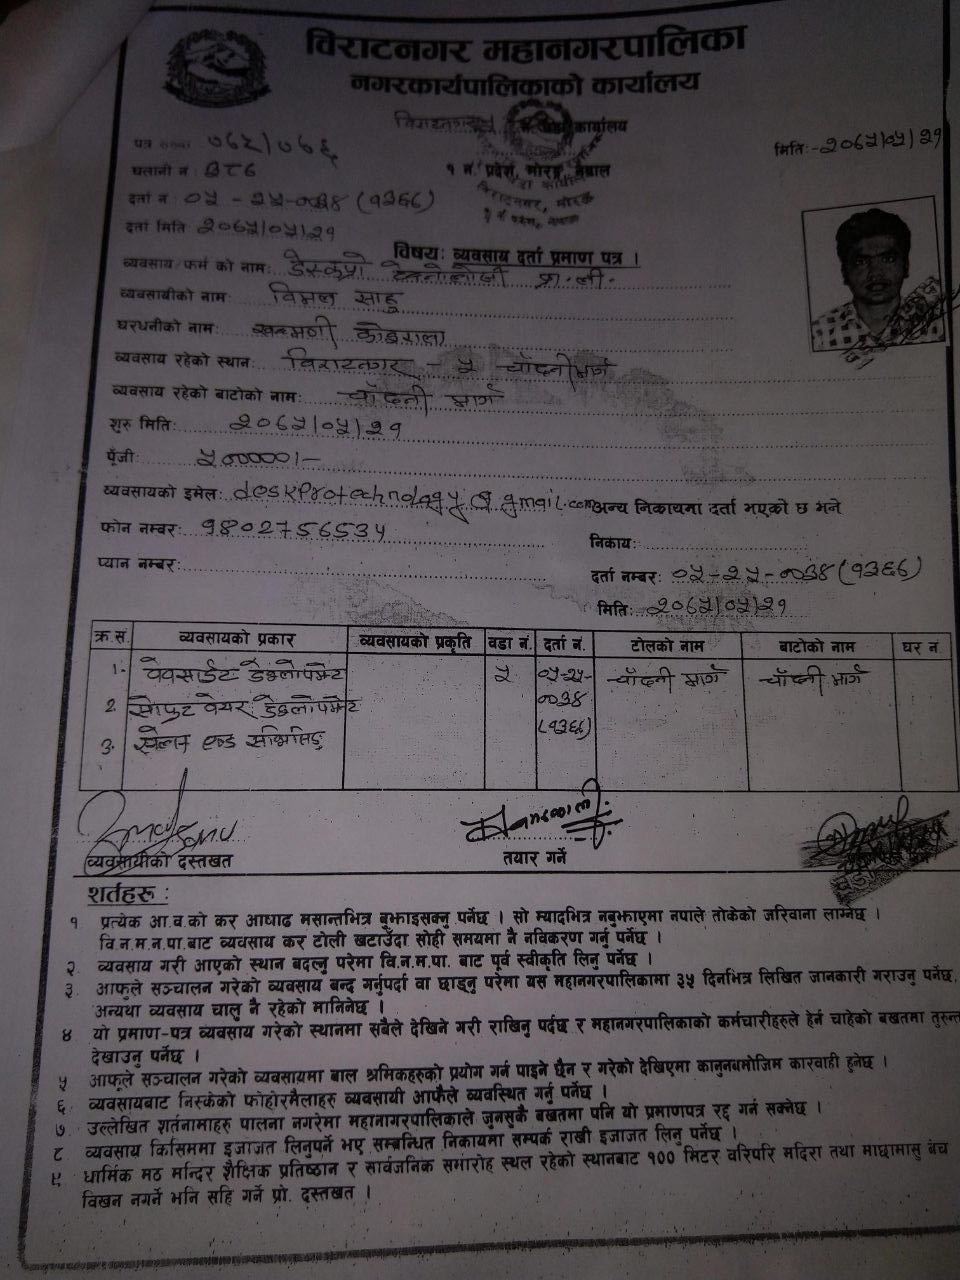 विराटनगर महानगरपालिका
नगरकार्यपालिकाको कार्यालय
विराटनगर वडा कार्यालय
१ नं. प्रदेश, मोरङ, नेपाल
पत्र संख्या ०७५/०७६
मिति:- २०७५/०५/२१
चलानी नं:
दर्ता नं: ०५-२५-००३४ (१३६६)
दर्ता मिति २०७५/०५/२१
विषय: व्यवसाय दर्ता प्रमाण पत्र ।
व्यवसाय/फर्म को नाम: डेस्कप्रो टेक्नोलोजी प्रा.ली.
व्यवसायीको नाम: विमल साहु
घरधनीको नाम: कोइराला
व्यवसाय रहेको स्थान: विराटनगर - ५ चाँदनी मार्ग
व्यवसाय रहेको बाटोको नाम: चाँदनी मार्ग
शुरु मिति: २०७५/०५/२१
पूँजी: ५०००००।-
व्यवसायको इमेल: deskprotechnology@gmail.com अन्य निकायमा दर्ता भएको छ भने
फोन नम्बर: 9802756534
निकाय:
प्यान नम्बर:
दर्ता नम्बर: ०५-२५-००३४ (१३६६)
मिति: २०७५/०५/२१
क्र.सं. व्यवसायको प्रकार व्यवसायको प्रकृति वडा नं. दर्ता नं. टोलको नाम बाटोको नाम घर नं.
1. वेवसाईट डेभ्लोपमेन्ट ५ ०५-२५- चाँदनी मार्ग चाँदनी मार्ग
2. सोफ्ट वेयर डेभ्लोपमेन्ट ००३४
3. सेल्स एण्ड सर्भिसिङ्ग (१३६६)
व्यवसायीको दस्तखत
तयार गर्ने
शर्तहरू :
१ प्रत्येक आ.व.को कर आषाढ मसान्तभित्र बुझाइसक्नु पर्नेछ । सो म्यादभित्र नबुझाएमा नपाले तोकेको जरिवाना लाग्नेछ ।
वि.न.म.न.पा.बाट व्यवसाय कर टोली खटाउँदा सोही समयमा नै नविकरण गर्नु पर्नेछ ।
२. व्यवसाय गरी आएको स्थान बदल्नु परेमा वि.न.म.पा. बाट पूर्व स्वीकृति लिनु पर्नेछ ।
३. आफुले सञ्चालन गरेको व्यवसाय बन्द गर्नुपर्दा वा छाड्नु परेमा यस महानगरपालिकामा ३५ दिनभित्र लिखित जानकारी गराउनु पर्नेछ,
अन्यथा व्यवसाय चालु नै रहेको मानिनेछ ।
४ यो प्रमाण-पत्र व्यवसाय गरेको स्थानमा सबैले देखिने गरी राखिनु पर्दछ र महानगरपालिकाको कर्मचारीहरुले हेर्न चाहेको बखतमा तुरुन्त
देखाउनु पर्नेछ ।
५ आफूले सञ्चालन गरेको व्यवसायमा बाल श्रमिकहरुको प्रयोग गर्न पाइने छैन र गरेको देखिएमा कानुनबमोजिम कारवाही हुनेछ ।
६. व्यवसायबाट निस्केको फोहोरमैलाहरु व्यवसायी आफैले व्यवस्थित गर्नु पर्नेछ ।
७. उल्लेखित शर्तनामाहरु पालना नगरेमा महानगरपालिकाले जुनसुकै बखतमा पनि यो प्रमाणपत्र रद्द गर्न सक्नेछ ।
८ व्यवसाय किसिममा इजाजत लिनुपर्ने भए सम्बन्धित निकायमा सम्पर्क राखी इजाजत लिनु पर्नेछ ।
९ धार्मिक मठ मन्दिर शैक्षिक प्रतिष्ठान र सार्वजनिक समारोह स्थल रहेको स्थानबाट १०० मिटर वरिपरि मदिरा तथा माछामासु बेच
विखन नगर्ने भनि सहि गर्ने प्रो. दस्तखत ।